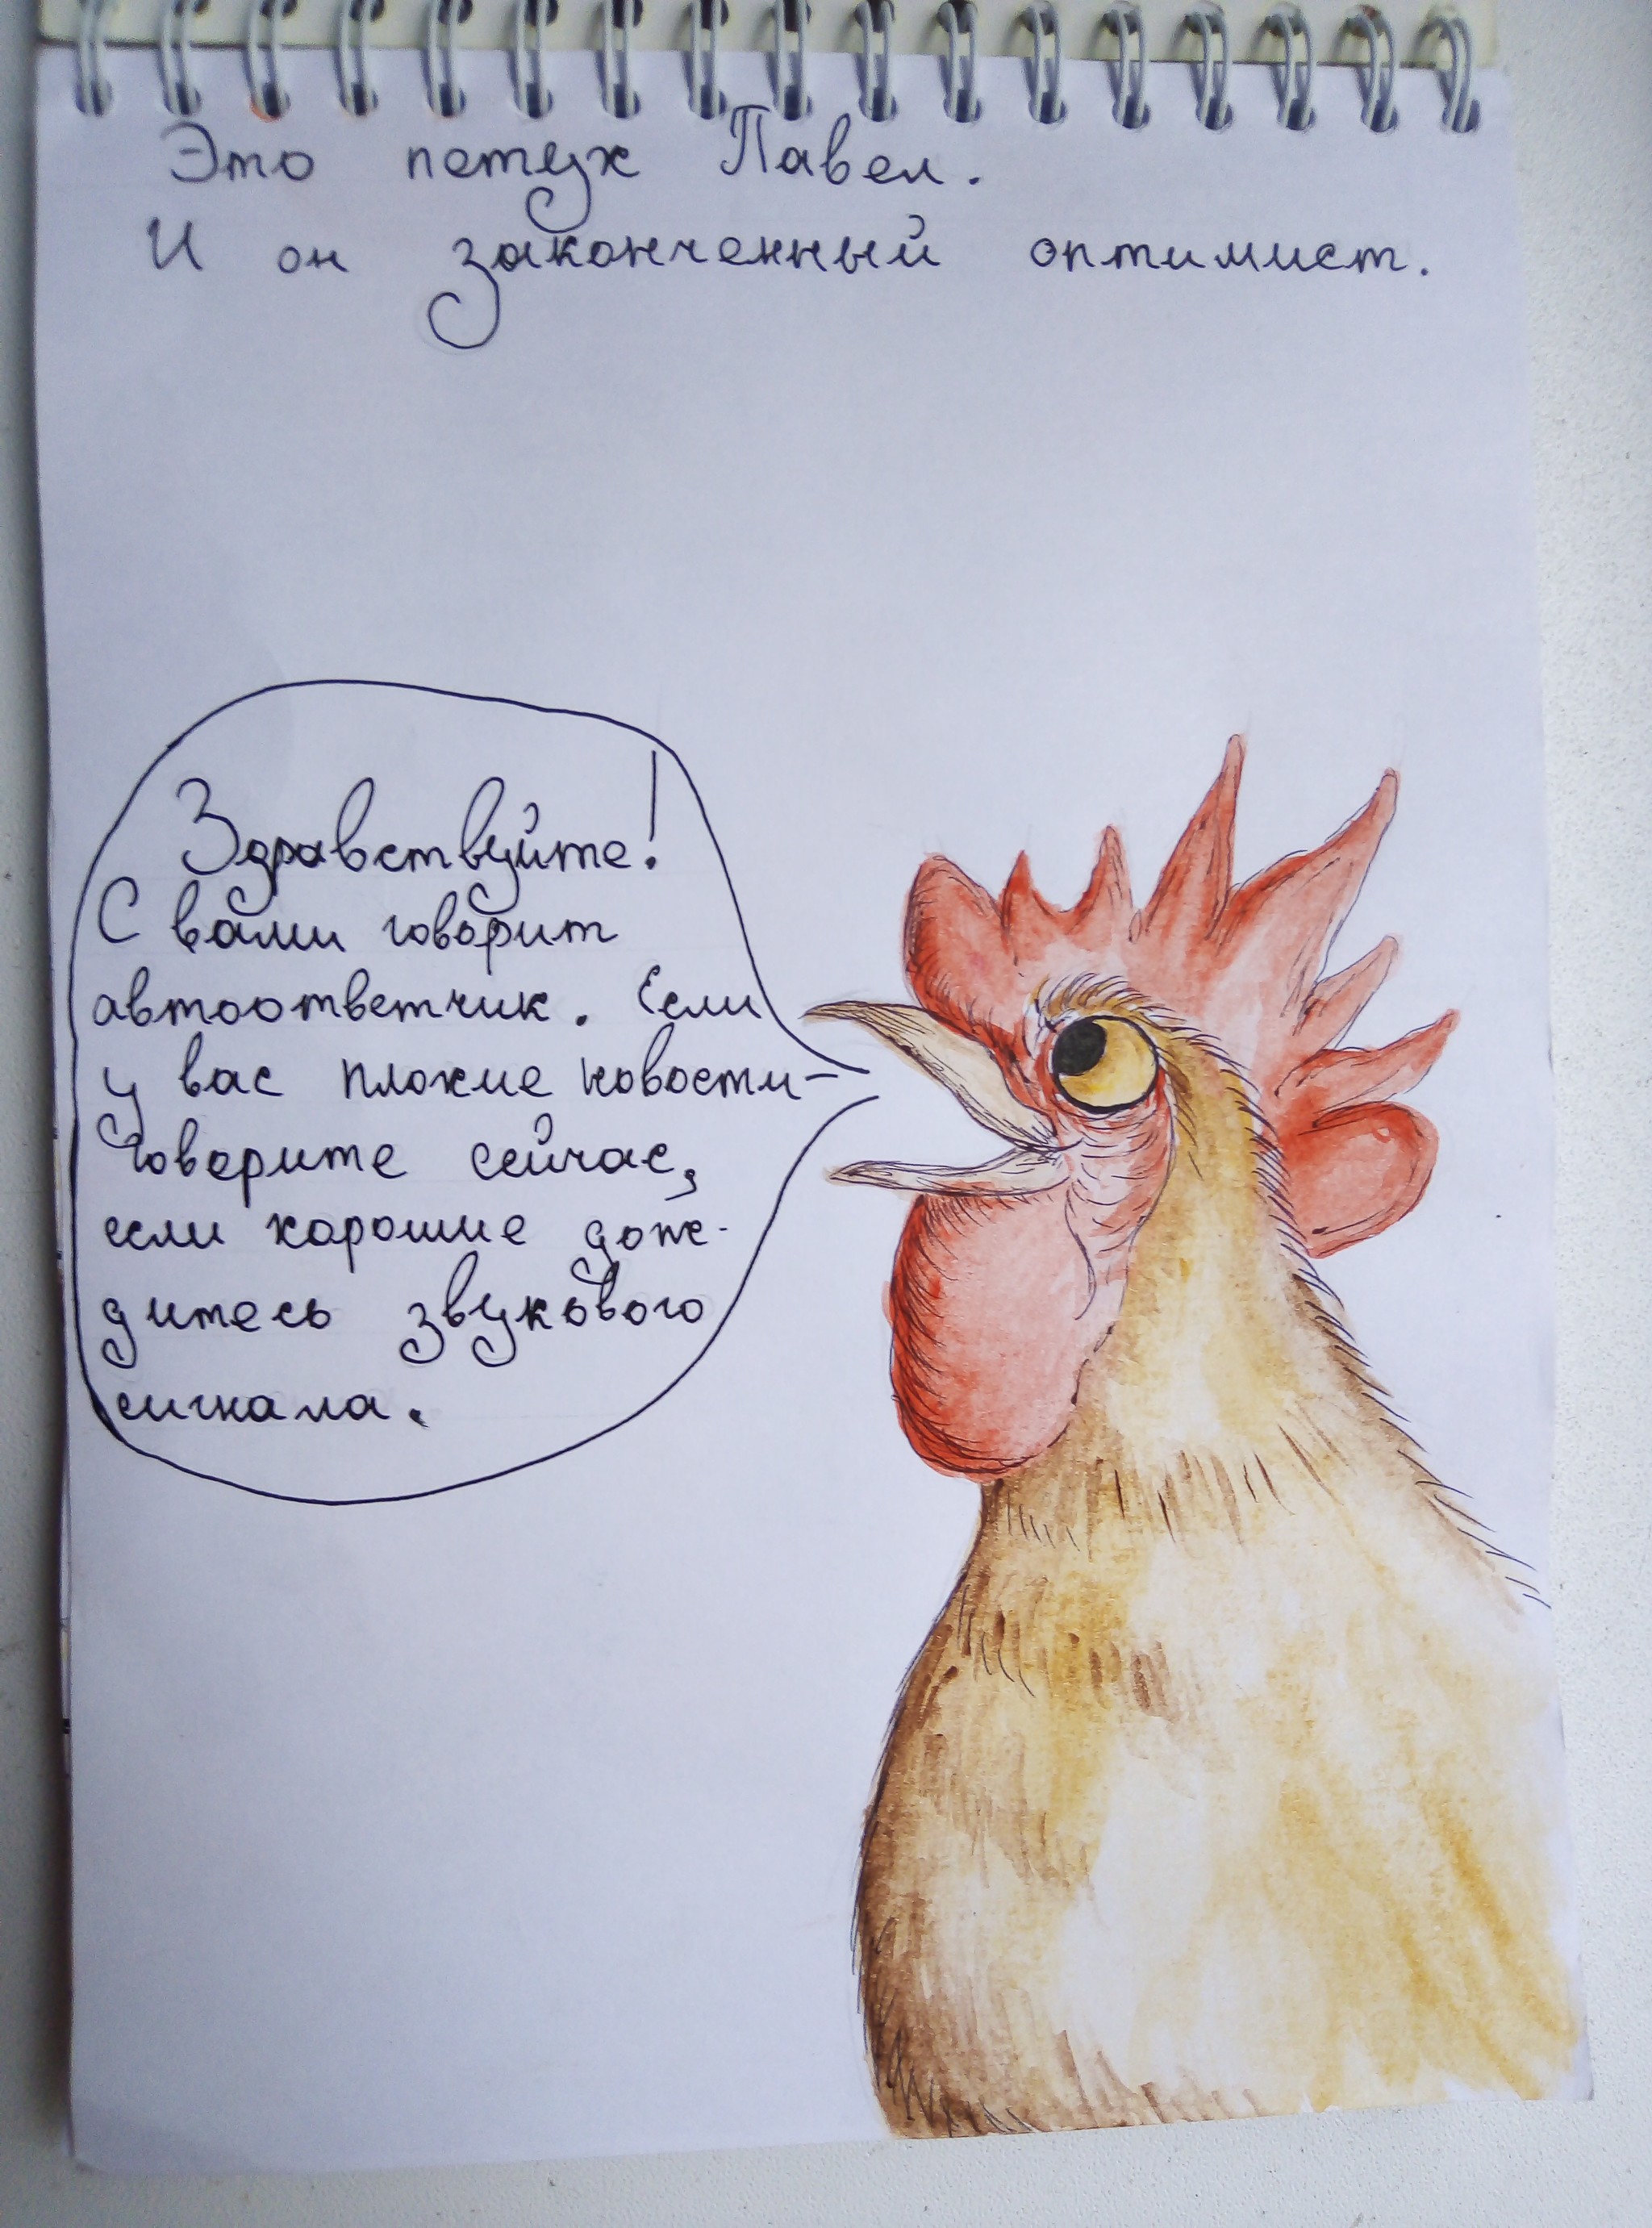 Это петух Павел.
И он законченный оптимист.
Здравствуйте!
С вами говорит
автоответчик. Если
у вас плохие новости -
говорите сейчас,
если хорошие дож-
дитесь звукового
сигнала.